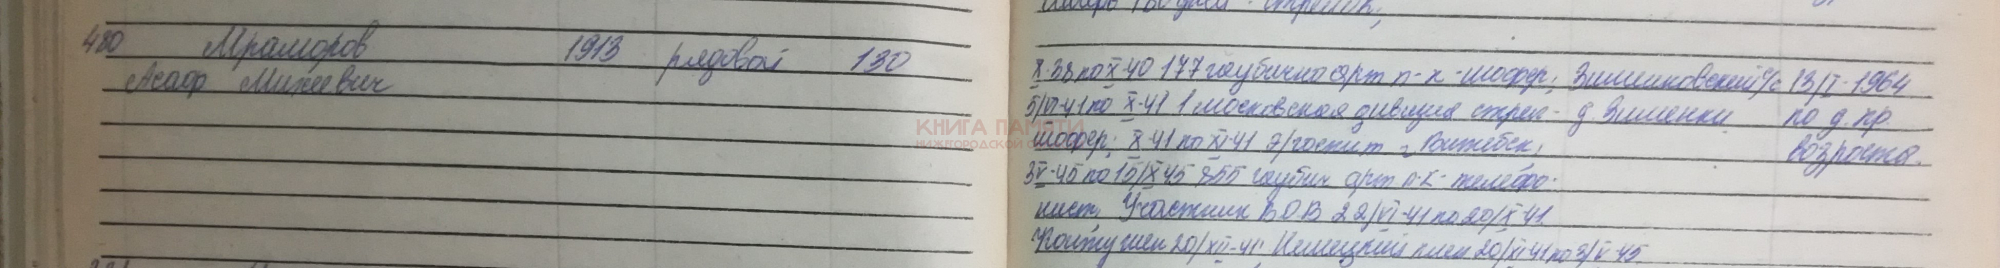 480 Мраморов 1913 рядовой 130
Асаф Михеевич
X-38 по X-40 177 гаубично арт п-к - шофер; Зименковский с/с 13/I-1964
5/VI-41 по X-41 1 московская дивизия стрел- д Зименки по д. пр
шофер; X-41 по XI-41 э/госпит г. Витебск, возраста.
3/V-45 по 15/X 45 855 гаубич арт п-к - телефо-
нист. Участник ВОВ 22/VI-41 по 20/X-41.
Контужен 20/XII-41, Немецкий плен 20/XI 41 по 3/V-45
КНИГА ПАМЯТИ
НИЖЕГОРОДСКОЙ